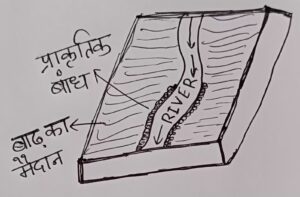 प्राकृतिक
बांध
RIVER
बाढ़ का
मैदान